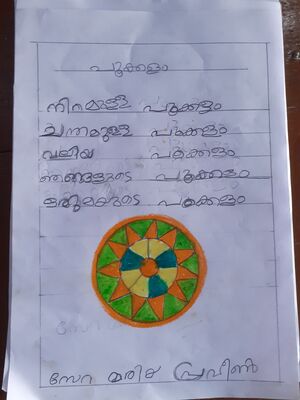 പൂക്കളം
നിറമുള്ള പൂക്കളം
ചന്തമുള്ള പൂക്കളം
വലിയ പൂക്കളം
ഞങ്ങളുടെ പൂക്കളം
ഒരുമയുടെ പൂക്കളം
സേറ മരിയ പ്രവീൺ